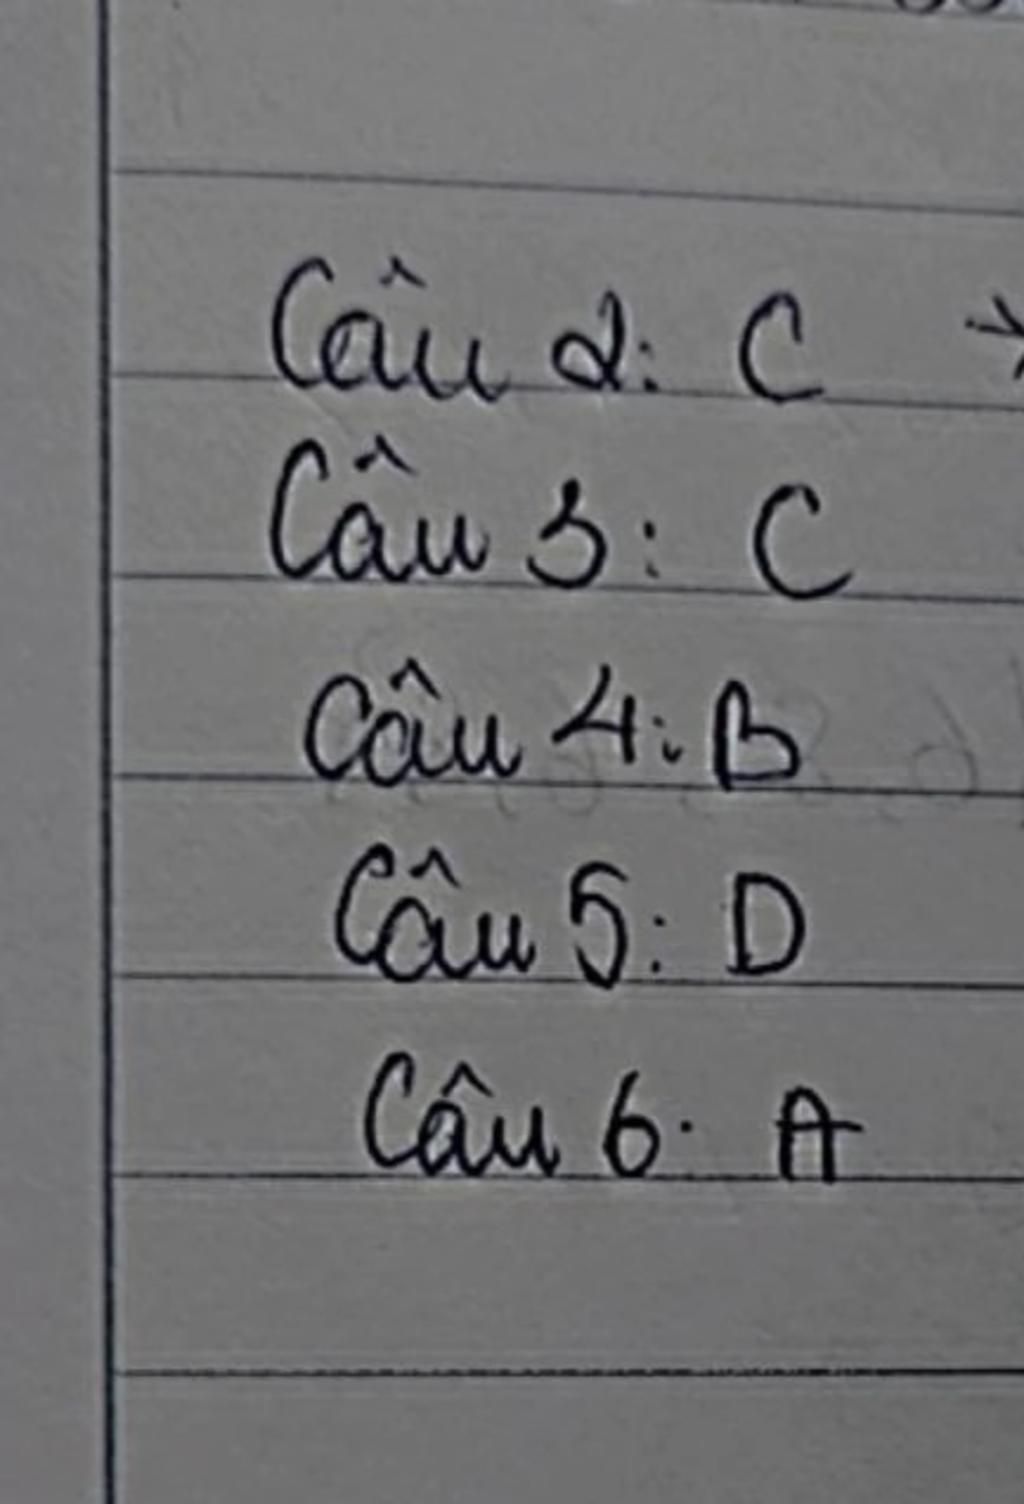 Câu 2: C
Câu 3: C
Câu 4: B
Câu 5: D
Câu 6. A